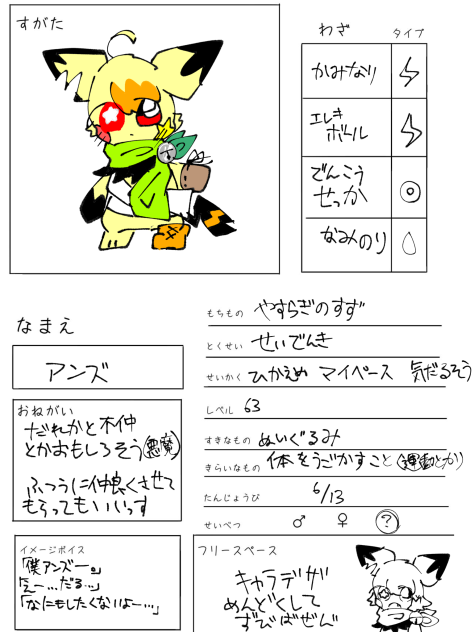 すがた
わざ タイプ
かみなり
エレキ
ボール
でんこう
せっか
なみのり
なまえ
アンズ
もちもの やすらぎのすず
とくせい せいでんき
せいかく ひかえめ マイペース 気だるそう
レベル 63
すきなもの ぬいぐるみ
きらいなもの 体をうごかすこと(運動とか)
たんじょうび 6/13
せいべつ ♂ ♀ ?
おねがい
だれかと不仲
とかおもしろそう(悪魔)
ふつうに仲良くさせて
もらってもいいっす
イメージボイス
「僕アンズー。」
「えー…だる…」
「なにもしたくないよー…」
フリースペース
キャラデザ
めんどくして
ずびばぜん